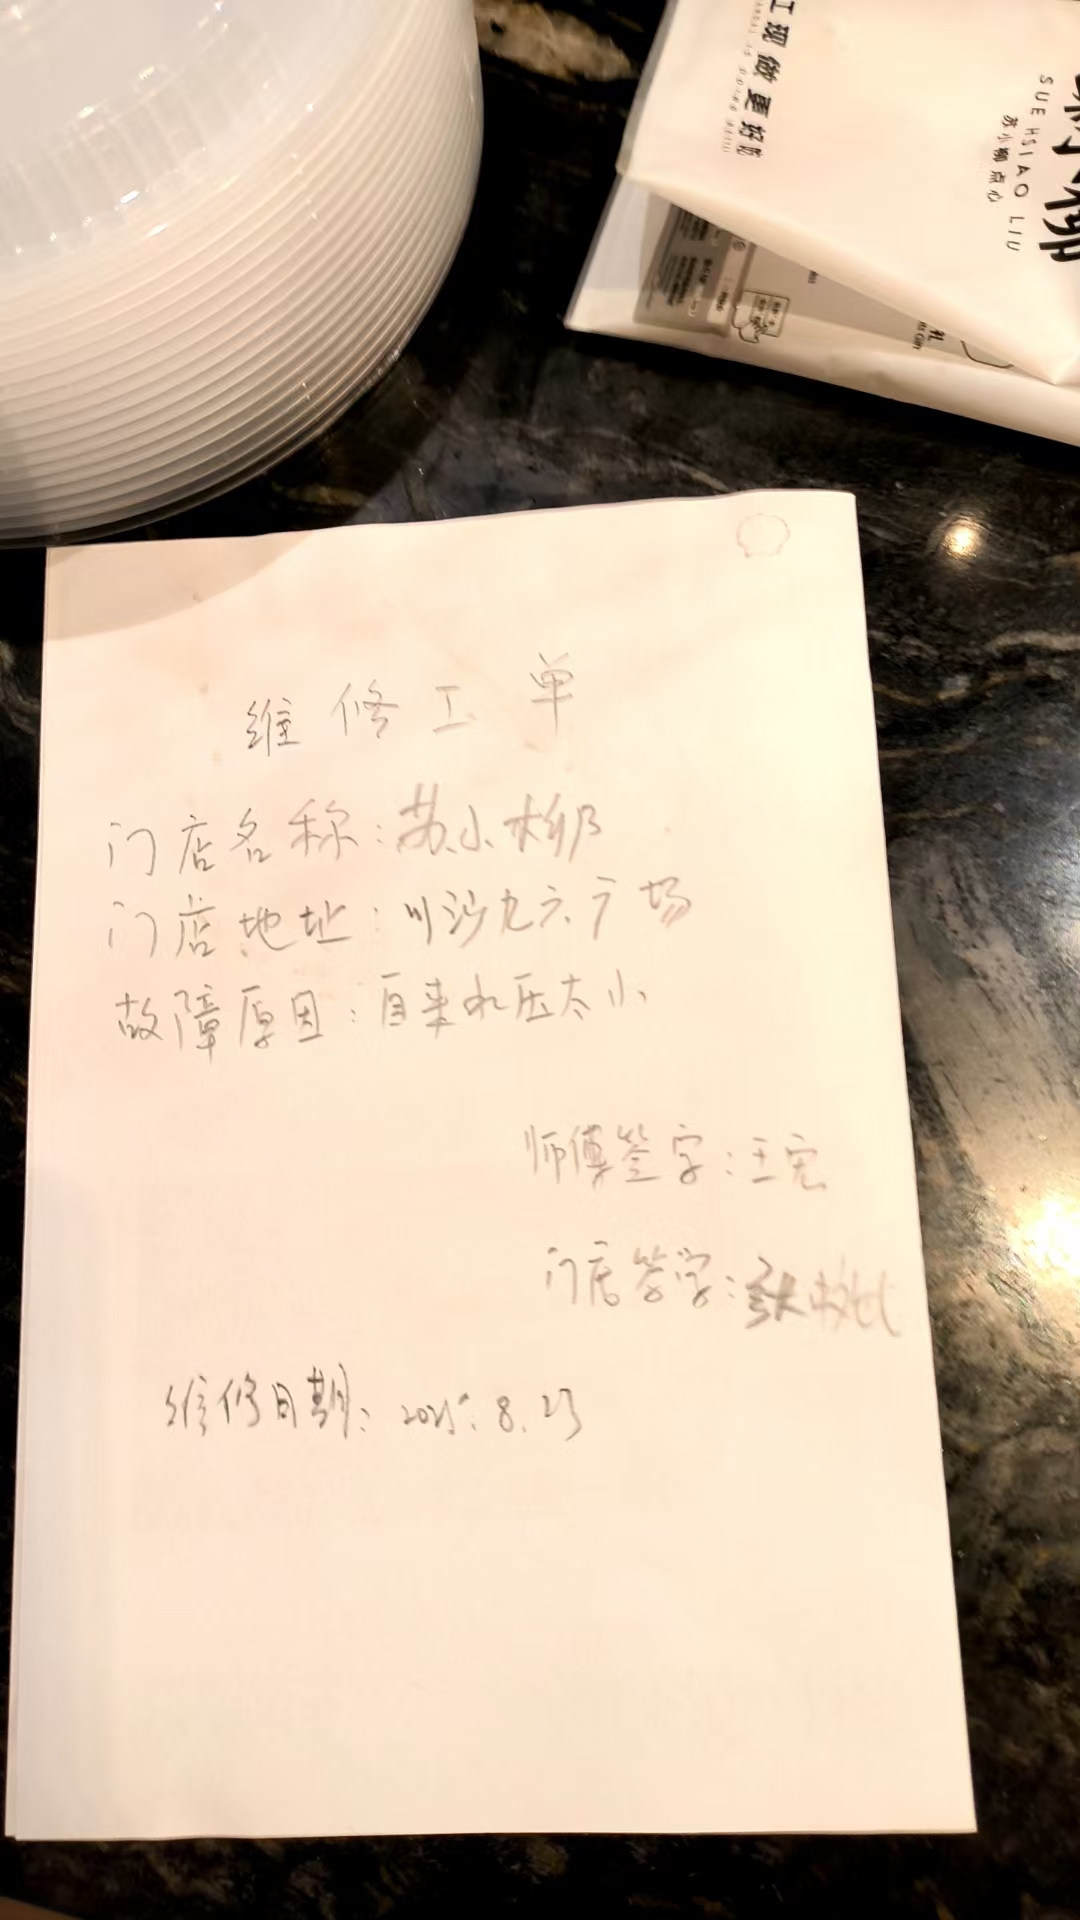 工现做更好吃
SUE HSIAO LIU
苏小柳点心
维修工单
门店名称:苏小柳
门店地址:川沙九六广场
故障原因:自来水压太小
师傅签字:王宏
门店签字:张
维修日期:2025.8.23